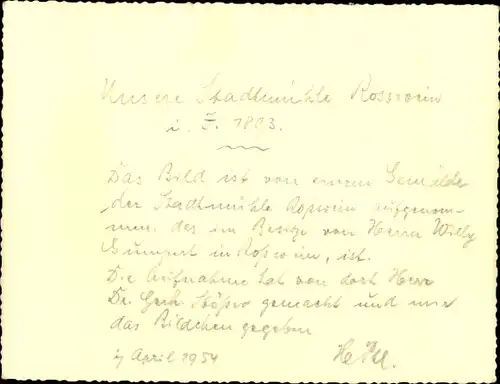 Unsere Stadtmühle Rosswein
i. J. 1803.
Das Bild ist von einem Gemälde
der Stadtmühle Roßwein aufgenom-
men, das im Besitze von Herrn Willy
Gumpert in Rosswein, ist.
Die Aufnahme hat von dort Herr
Dr. Gerh. gemacht und uns
das Bildchen gegeben
April 1954